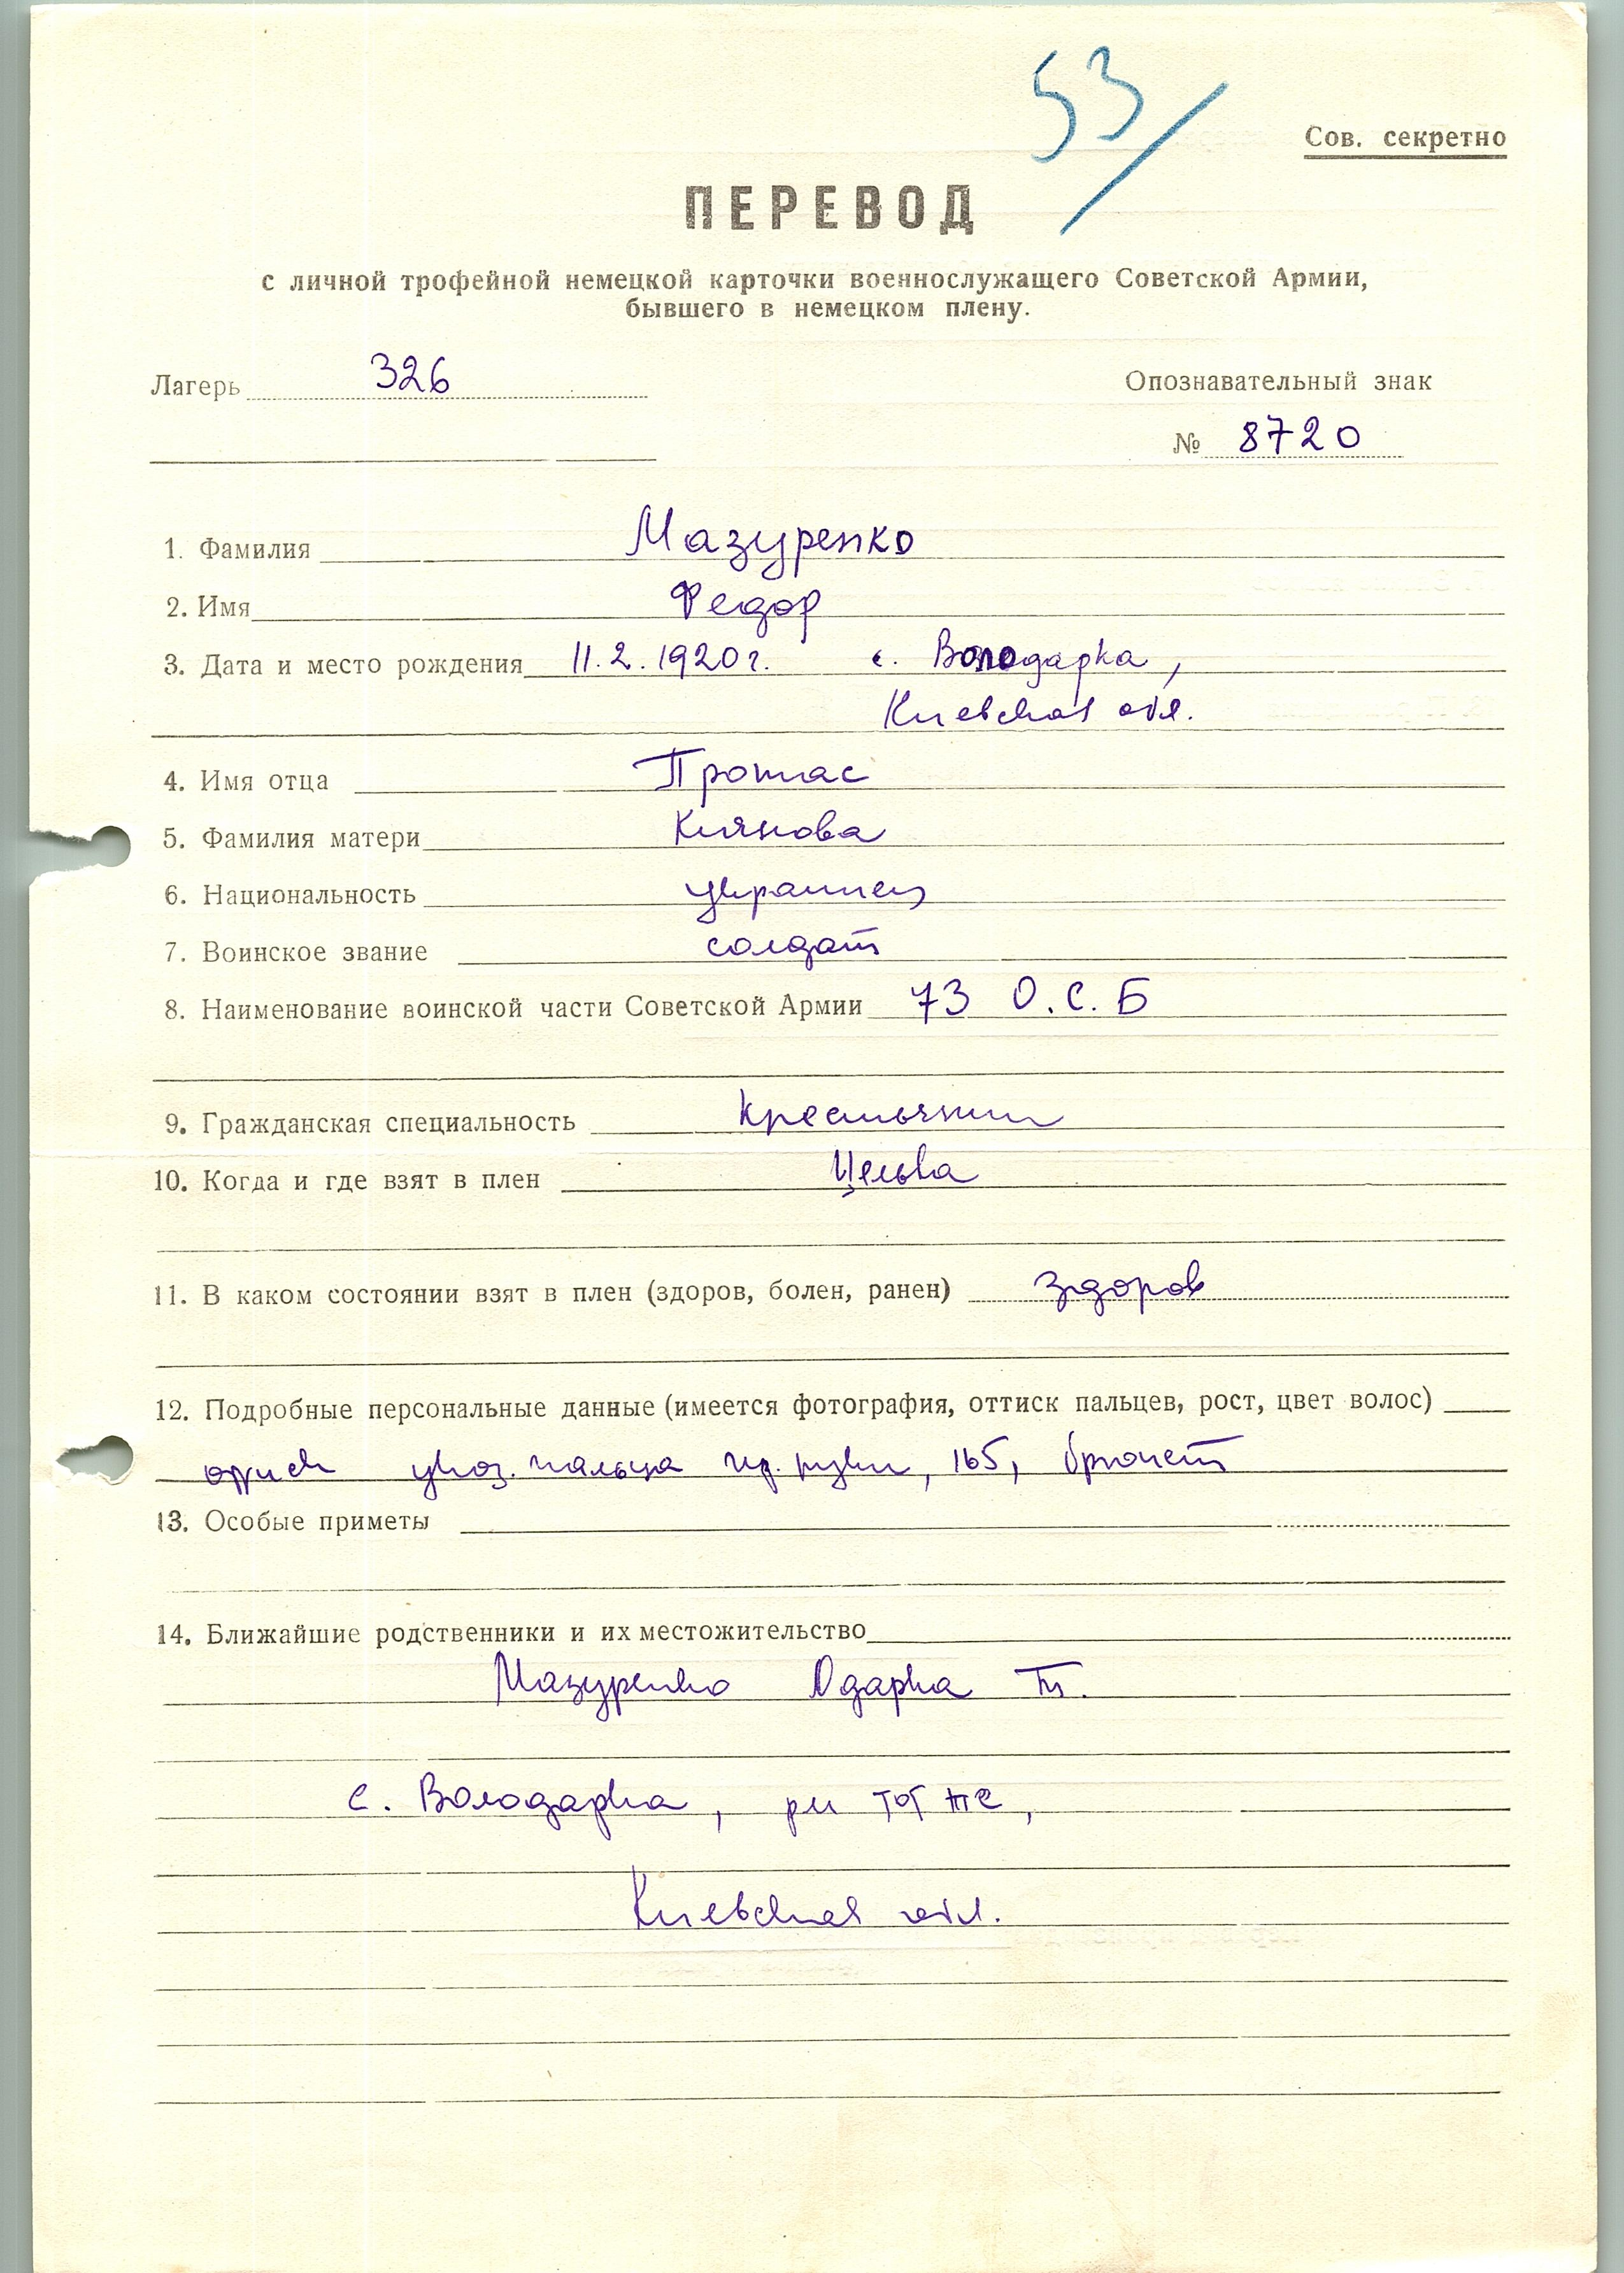 53/
Сов. секретно
ПЕРЕВОД
с личной трофейной немецкой карточки военнослужащего Советской Армии,
бывшего в немецком плену.
Лагерь 326 Опознавательный знак
№ 8720
1. Фамилия Мазуренко
2. Имя Федор
3. Дата и место рождения 11.2.1920 г. с. Володарка,
Киевская обл.
4. Имя отца Протас
5. Фамилия матери Киянова
6. Национальность украинец
7. Воинское звание солдат
8. Наименование воинской части Советской Армии 73 О.С.Б
9. Гражданская специальность крестьянин
10. Когда и где взят в плен Цельва
11. В каком состоянии взят в плен (здоров, болен, ранен) здоров
12. Подробные персональные данные (имеется фотография, оттиск пальцев, рост, цвет волос)
указ. пальца пр. руки, 165, брюнет
13. Особые приметы
14. Ближайшие родственники и их местожительство
Мазуренко Одарка
с. Володарка, рн тот же,
Киевская обл.